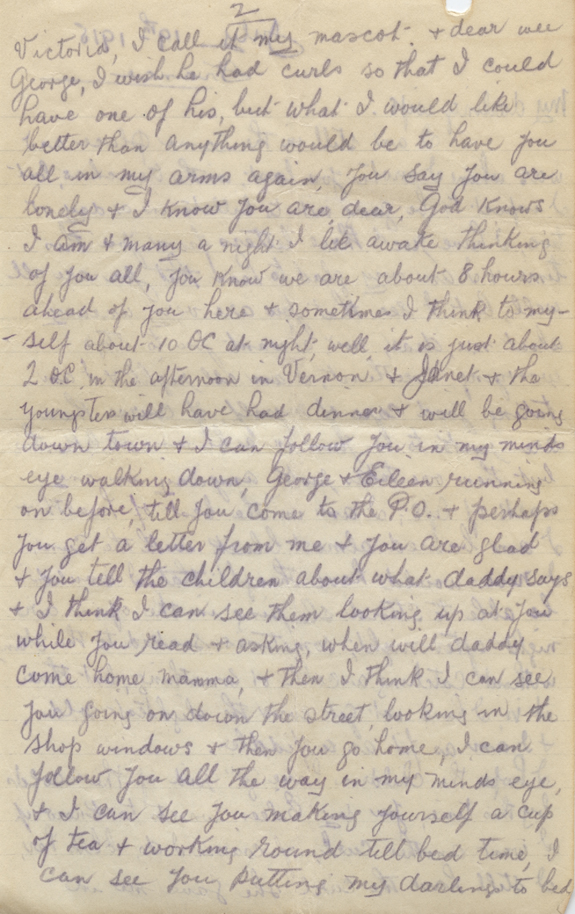 2
Victoria, I call it my mascot. & dear wee
George, I wish he had curls so that I could
have one of his, but what I would like
better than anything would be to have you
all in my arms again, you say you are
lonely & I know you are, dear, God knows
I am & many a night I lie awake thinking
of you all, you know we are about 8 hours
ahead of you here & sometimes I think to my-
self about 10 OC at night, well, it is just about
2 OC, in the afternoon in Vernon & Janet & the
youngsters will have had dinner & will be going
down town & I can follow you in my minds
eye walking down, George & Eileen running
on before, till you come to the P.O. & perhaps
you get a letter from me & you are glad
& you tell the children about what daddy says
& I think I can see them looking up at you
while you read & asking, when will daddy
come home mamma, & then I think I can see
you going on down the street, looking in the
shop windows & then you go home, I can
follow you all the way in my minds eye,
& I can see you making yourself a cup
of tea & working round till bed time, I
can see you putting my darlings to bed